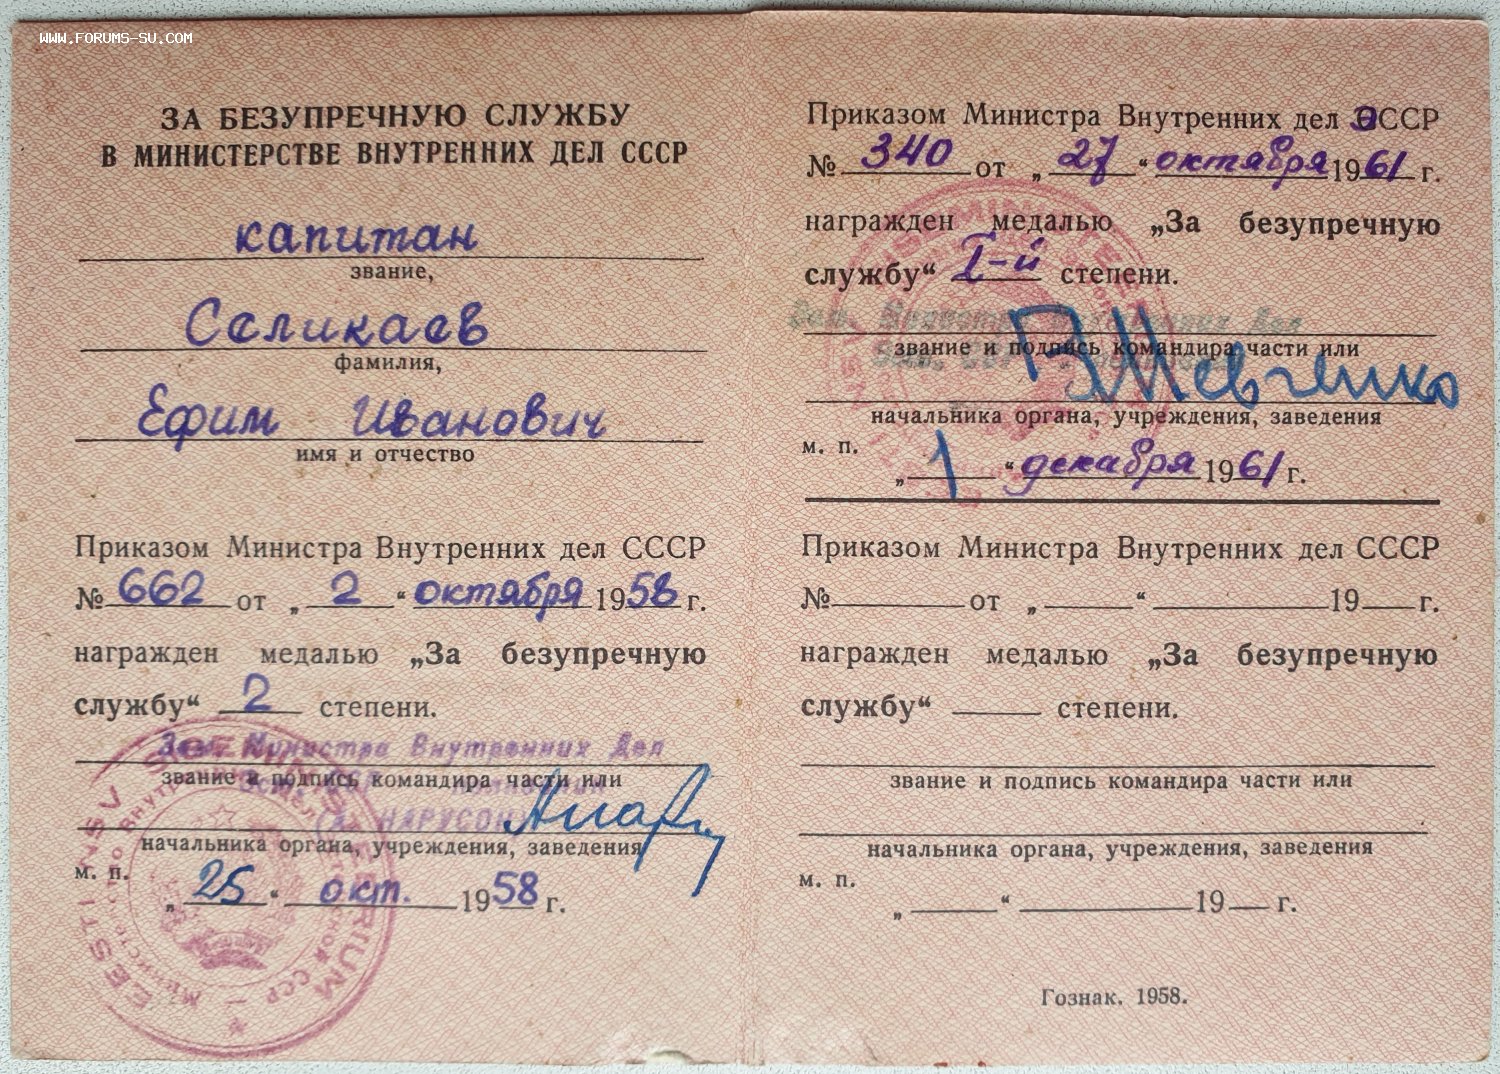 WWW.FORUMS-SU.COM
ЗА БЕЗУПРЕЧНУЮ СЛУЖБУ
В МИНИСТЕРСТВЕ ВНУТРЕННИХ ДЕЛ СССР
капитан
звание,
Селикаев
фамилия,
Ефим Иванович
имя и отчество
Приказом Министра Внутренних дел СССР
№ 662 от „ 2 “ октября 1958 г.
награжден медалью „За безупречную
службу“ 2 степени.
Зам. Министра Внутренних Дел
звание и подпись командира части или
НАРУСОН
начальника органа, учреждения, заведения
м. п.
„ 25 “ окт. 1958 г.
EESTI NSV SISEMINISTEERIUM
Министерство Внутренних Дел Эстонской ССР
Приказом Министра Внутренних дел ЭССР
№ 340 от „ 27 “ октября 1961 г.
награжден медалью „За безупречную
службу“ I-й степени.
Зам. Министра Внутренних Дел
звание и подпись командира части или
Шевченко
начальника органа, учреждения, заведения
м. п.
„ 1 “ декабря 1961 г.
Приказом Министра Внутренних дел СССР
№ от „ “ 19 г.
награжден медалью „За безупречную
службу“ степени.
звание и подпись командира части или
начальника органа, учреждения, заведения
м. п.
„ “ 19 г.
Гознак. 1958.